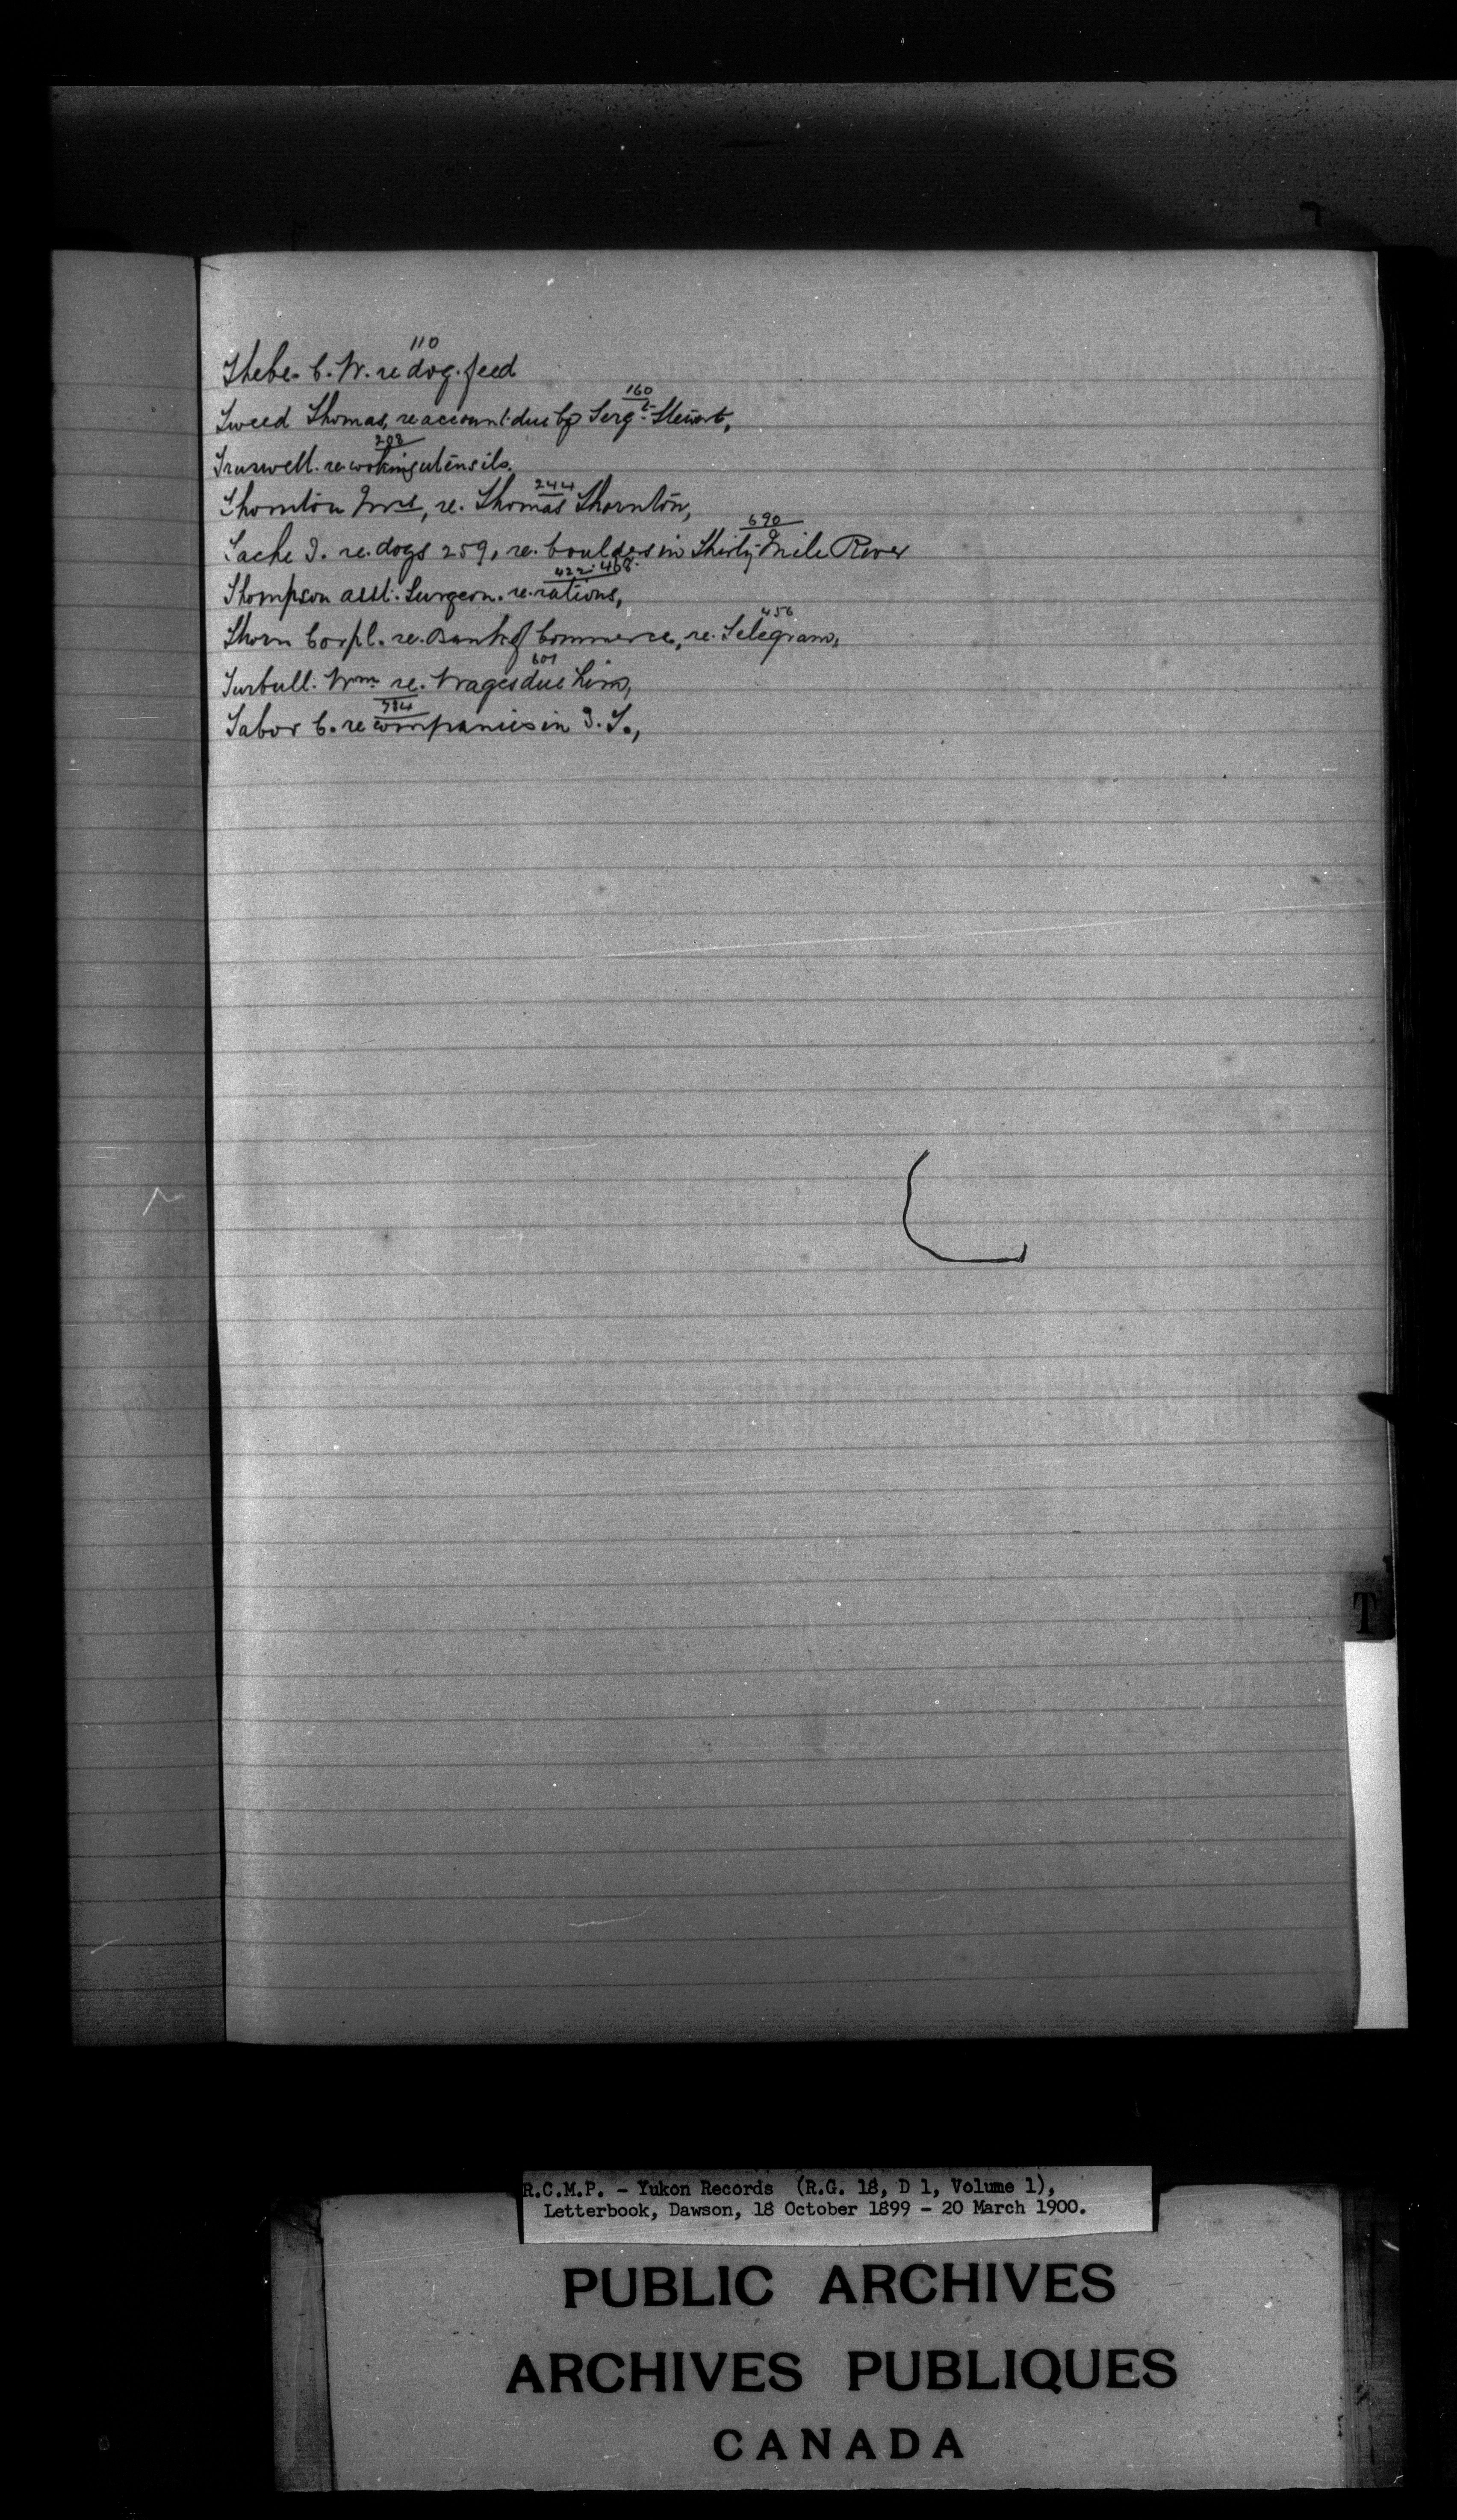 110
Thebe. C. W. re dog. feed
160
Tweed Thomas, re account due by Sergt. Stewart,
208
Truswell. re cooking utensils.
244
Thornton Mrs, re. Thomas Thornton,
690
Tache J. re. dogs 259, re. boulders in Thirty Mile River
422. 468.
Thompson asst. Surgeon. re. rations,
456
Thorn Corpl. re. Bank of Commerce, re. Telegram,
601
Turbull. Wm. re. Wages due him,
784
Tabor C. re companies in Y. T.,
T
R.C.M.P. - Yukon Records (R.G. 18, D 1, Volume 1),
Letterbook, Dawson, 18 October 1899 - 20 March 1900.
PUBLIC ARCHIVES
ARCHIVES PUBLIQUES
CANADA